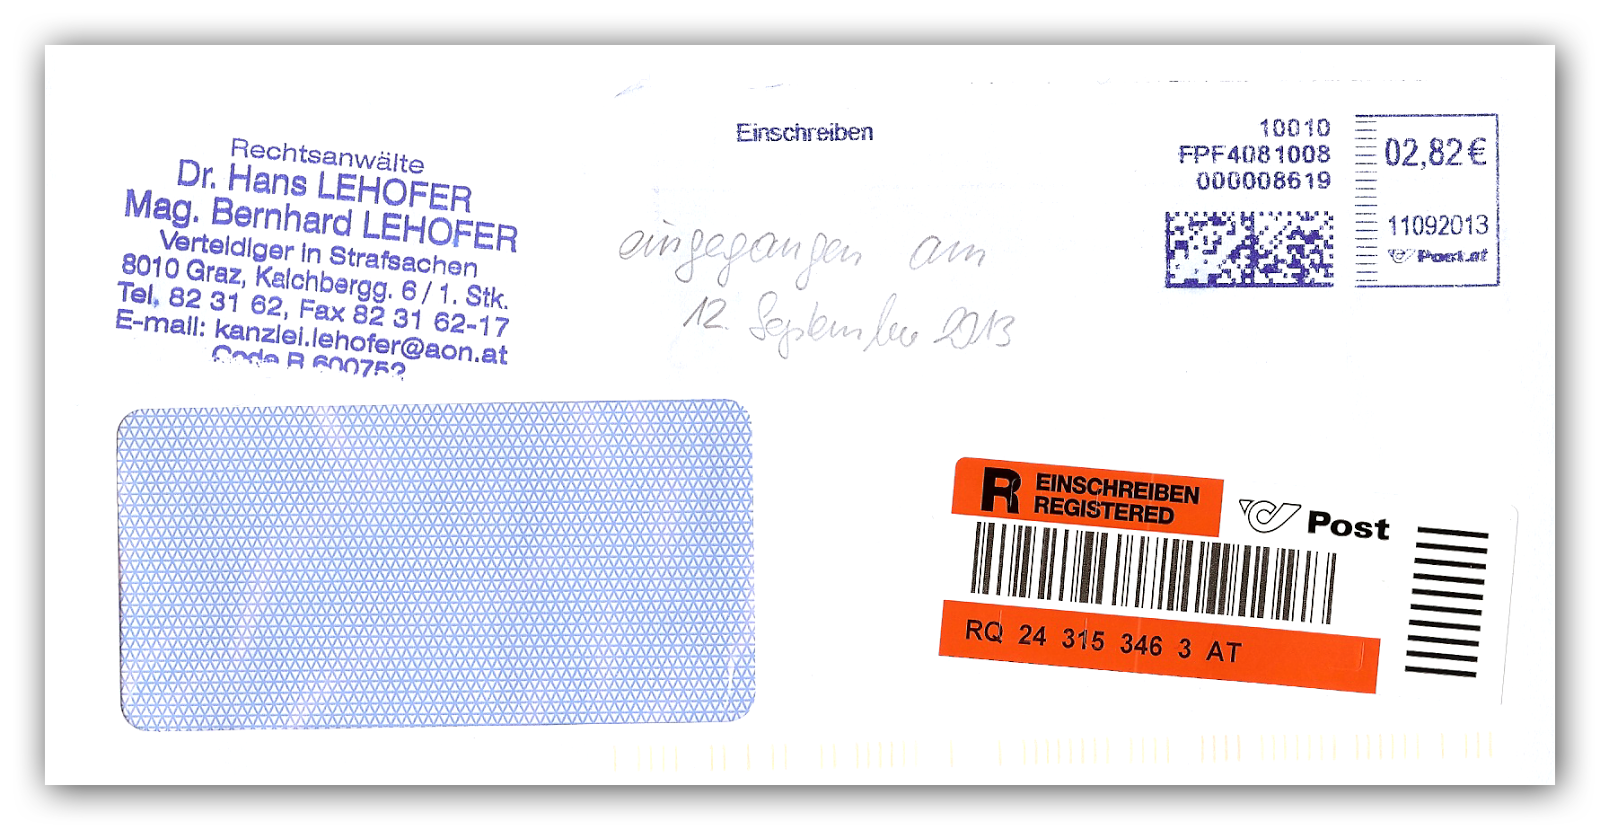 Rechtsanwälte
Dr. Hans LEHOFER
Mag. Bernhard LEHOFER
Verteidiger in Strafsachen
8010 Graz, Kalchbergg. 6 / 1. Stk.
Tel. 82 31 62, Fax 82 31 62-17
E-mail: kanzlei.lehofer@aon.at
Code R 600752
Einschreiben
eingegangen am
12. September 2013
10010
FPF4081008
000008619
02,82 €
11092013
Post.at
R EINSCHREIBEN
REGISTERED
Post
RQ 24 315 346 3 AT